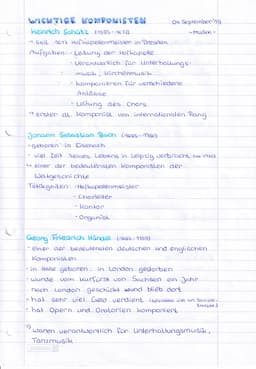 WICHTIGE KOMPONISTEN
04. September '19
- Musik -
Heinrich Schütz (1585-1672)
- seit 1617 Hofkapellenmeister in Dresden
Aufgaben: - Leitung der Hofkapelle
- verantwortlich für Unterhaltungs-
musik, Kirchenmusik
- komponieren für verschiedene
Anlässe
- Leitung des Chors
→ erster dt. Komponist von internationalem Rang
Johann Sebastian Bach (1685-1750)
- geboren in Eisenach
- viel Zeit seines Lebens in Leipzig verbracht
→ einer der bedeutensten Komponisten der
Weltgeschichte
Tätigkeiten: - Hofkapellenmeister
- Chorleiter
- Kantor
- Organist
Georg Friedrich Händel (1685-1759)
- einer der bedeutensten deutschen und englischen
Komponisten
- in Halle geboren, in London gestorben
- wurde vom Kurfürst von Sachsen ein Jahr
nach London geschickt und blieb dort
- hat sehr viel Geld verdient
- hat Opern und Oratorien komponiert
→ waren verantwortlich für Unterhaltungsmusik,
Tanzmusik